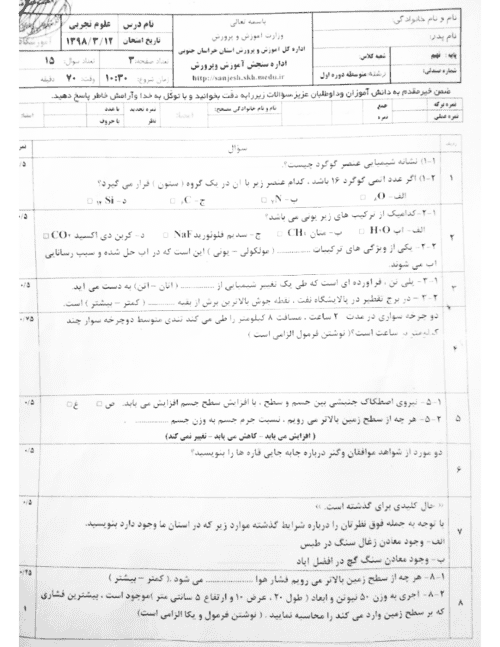 نام و نام خانوادگی:
نام پدر:
پایه: نهم
شماره صندلی:
شعبه کلاس:
رشته: متوسطه دوره اول
باسمه تعالی
وزارت آموزش و پرورش
اداره کل آموزش و پرورش استان خراسان جنوبی
اداره سنجش آموزش وپرورش
http://sanjesh.skh.medu.ir
نام درس: علوم تجربی
تاریخ امتحان: ۱۳۹۸/۳/۱۲
تعداد صفحه: ۳
تعداد سوال: ۱۵
زمان شروع: ۱۰:۳۰
وقت: ۷۰ دقیقه
ضمن خیرمقدم به دانش آموزان وداوطلبان عزیز،سؤالات زیررابه دقت بخوانید و با توکل به خدا وآرامش خاطر پاسخ دهید.
نمره برگه
نمره عملی
جمع
نمره
نام و نام خانوادگی مصحح:
نمره تجدید
نظر
با عدد
با حروف
ردیف
سوال
۱
۱-۱) نشانه شیمیایی عنصر گوگرد چیست؟
۱-۲) اگر عدد اتمی گوگرد ۱۶ باشد ، کدام عنصر زیر با آن در یک گروه ( ستون ) قرار می گیرد؟
الف- ₈O ب- ₇N ج- ₆C د- ₁₄Si
۲
۲-۱- کدامیک از ترکیب های زیر یونی می باشد؟
الف- آب H₂O □ ب- متان CH₄ □ ج- سدیم فلوئورید NaF □ د- کربن دی اکسید CO₂ □
۲-۲- یکی از ویژگی های ترکیبات .............. ( مولکولی - یونی ) این است که در آب حل شده و سبب رسانایی
آب می شوند.
۰/۵
۳
۳-۱- پلی تن ، فرآورده ای است که طی یک تغییر شیمیایی از .............. ( اتان - اتن) به دست می آید.
۳-۲- در برج تقطیر در پالایشگاه نفت ، نقطه جوش بالاترین برش از بقیه .......... ( کمتر - بیشتر ) است.
۰/۵
۴
دو چرخه سواری در مدت ۲ ساعت ، مسافت ۸ کیلومتر را طی می کند تندی متوسط دوچرخه سوار چند
کیلومتر بر ساعت است؟( نوشتن فرمول الزامی است )
۰/۷۵
۵
۵-۱- نیروی اصطکاک جنبشی بین جسم و سطح ، با افزایش سطح جسم افزایش می یابد. ص □ غ □
۵-۲- هر چه از سطح زمین بالاتر می رویم ، نسبت جرم جسم به وزن جسم .............. .
( افزایش می یابد - کاهش می یابد - تغییر نمی کند)
۰/۵
۶
دو مورد از شواهد موافقان وگنر درباره جابه جایی قاره ها را بنویسید؟
۰/۵
۷
« حال کلیدی برای گذشته است. »
با توجه به جمله فوق نظرتان را درباره شرایط گذشته موارد زیر که در استان ما وجود دارد بنویسید.
الف- وجود معادن زغال سنگ در طبس
ب- وجود معادن سنگ گچ در افضل آباد
۰/۵
۸
۸-۱- هر چه از سطح زمین بالاتر می رویم فشار هوا .............. می شود .( کمتر - بیشتر )
۸-۲- آجری به وزن ۵۰ نیوتن و ابعاد ( طول ۲۰ ، عرض ۱۰ و ارتفاع ۵ سانتی متر )موجود است ، بیشترین فشاری
که بر سطح زمین وارد می کند را محاسبه نمایید . ( نوشتن فرمول و یکا الزامی است)
۰/۲۵
۱